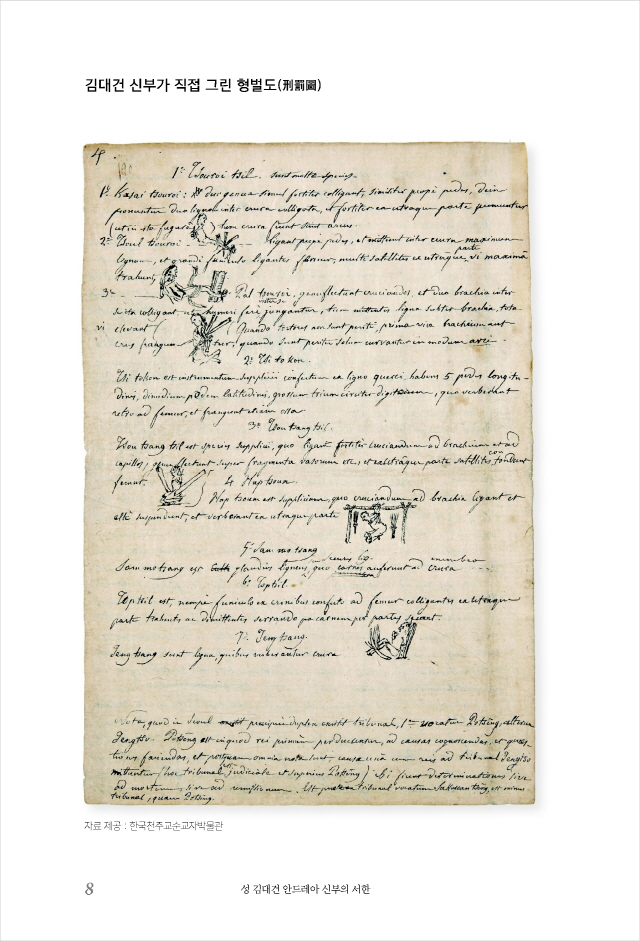 김대건 신부가 직접 그린 형벌도(刑罰圖)
4
1º Tsouroi tsil. sunt multæ species.
1º Kasai tsouroi: duo genua simul fortiter colligant, similiter prope pedes, dein
ponuntur duo ligna inter crura colligata, et fortiter ex utraque parte
crura fiunt sicut arcus.
2º Tsoul tsouroi ligant prope pedes, et mittunt inter crura maximum
lignum, et grandi funiculo ligantes femur, multi satellites ex utraque parte vi maxima
trahunt
3º Pal tsouroi, genuflectunt cruciandos, et duo brachia inter
se ita colligant ut humeri fere jungantur, tum mittentes ligna subter brachia, tota
vi elevant Quando tortores non sunt periti, prima vice brachium aut
crus frangun tur, quando sunt periti solum curvantur in modum arci.
2º Tsi to kon.
Tsi to kon est instrumentum supplicii confectum ex ligno querci, habens 5 pedes longitu-
dinis, dimidium pedem latitudinis, grossum trium circiter digitorum, quo verberant
retro ad femur, et frangunt etiam ossa
3º Tsou tsang tsil.
Tsou tsang tsil est species supplicii, quo ligant fortiter cruciandum ad brachium et ad
capillos, genuflectunt super fragmenta vasorum etc., et ex utraque parte satellites
ferunt.
4 Hap tsoum
Hap tsoum est supplicium, quo cruciandum ad brachia ligant et
alte suspendunt, et verberant ex utraque parte
5º Sam mo tsang
Sam mo tsang est gladius ligneus, quo carnes auferunt ad crura
6º Top tsil
Top tsil est, nempe funiculo ex crinibus confecto ad femur colligantes ex utraque
parte trahentes ac dimittentes serrando per carnem per partes secant.
7º Teng tsang.
Teng tsang sunt ligna, quibus
crura
Nota, quod in Seoul præcipue duplex existit tribunal, 1um vocatur Potseng, alterum
Jengtso. Potseng est in quod rei primum perducuntur, ad causas cognoscendas, et quæs-
tiones faciendas, et postquam omnia nota sunt, causa una cum reis ad tribunal Jengtso
mittuntur, (hoc tribunal judiciale et superius Potseng) ibi fiunt determinationes sive
ad mortem, sive ad exilium. Est tribunal vocatum
est minus
tribunal, quam Potseng.
자료 제공 : 한국천주교순교자박물관
8
성 김대건 안드레아 신부의 서한